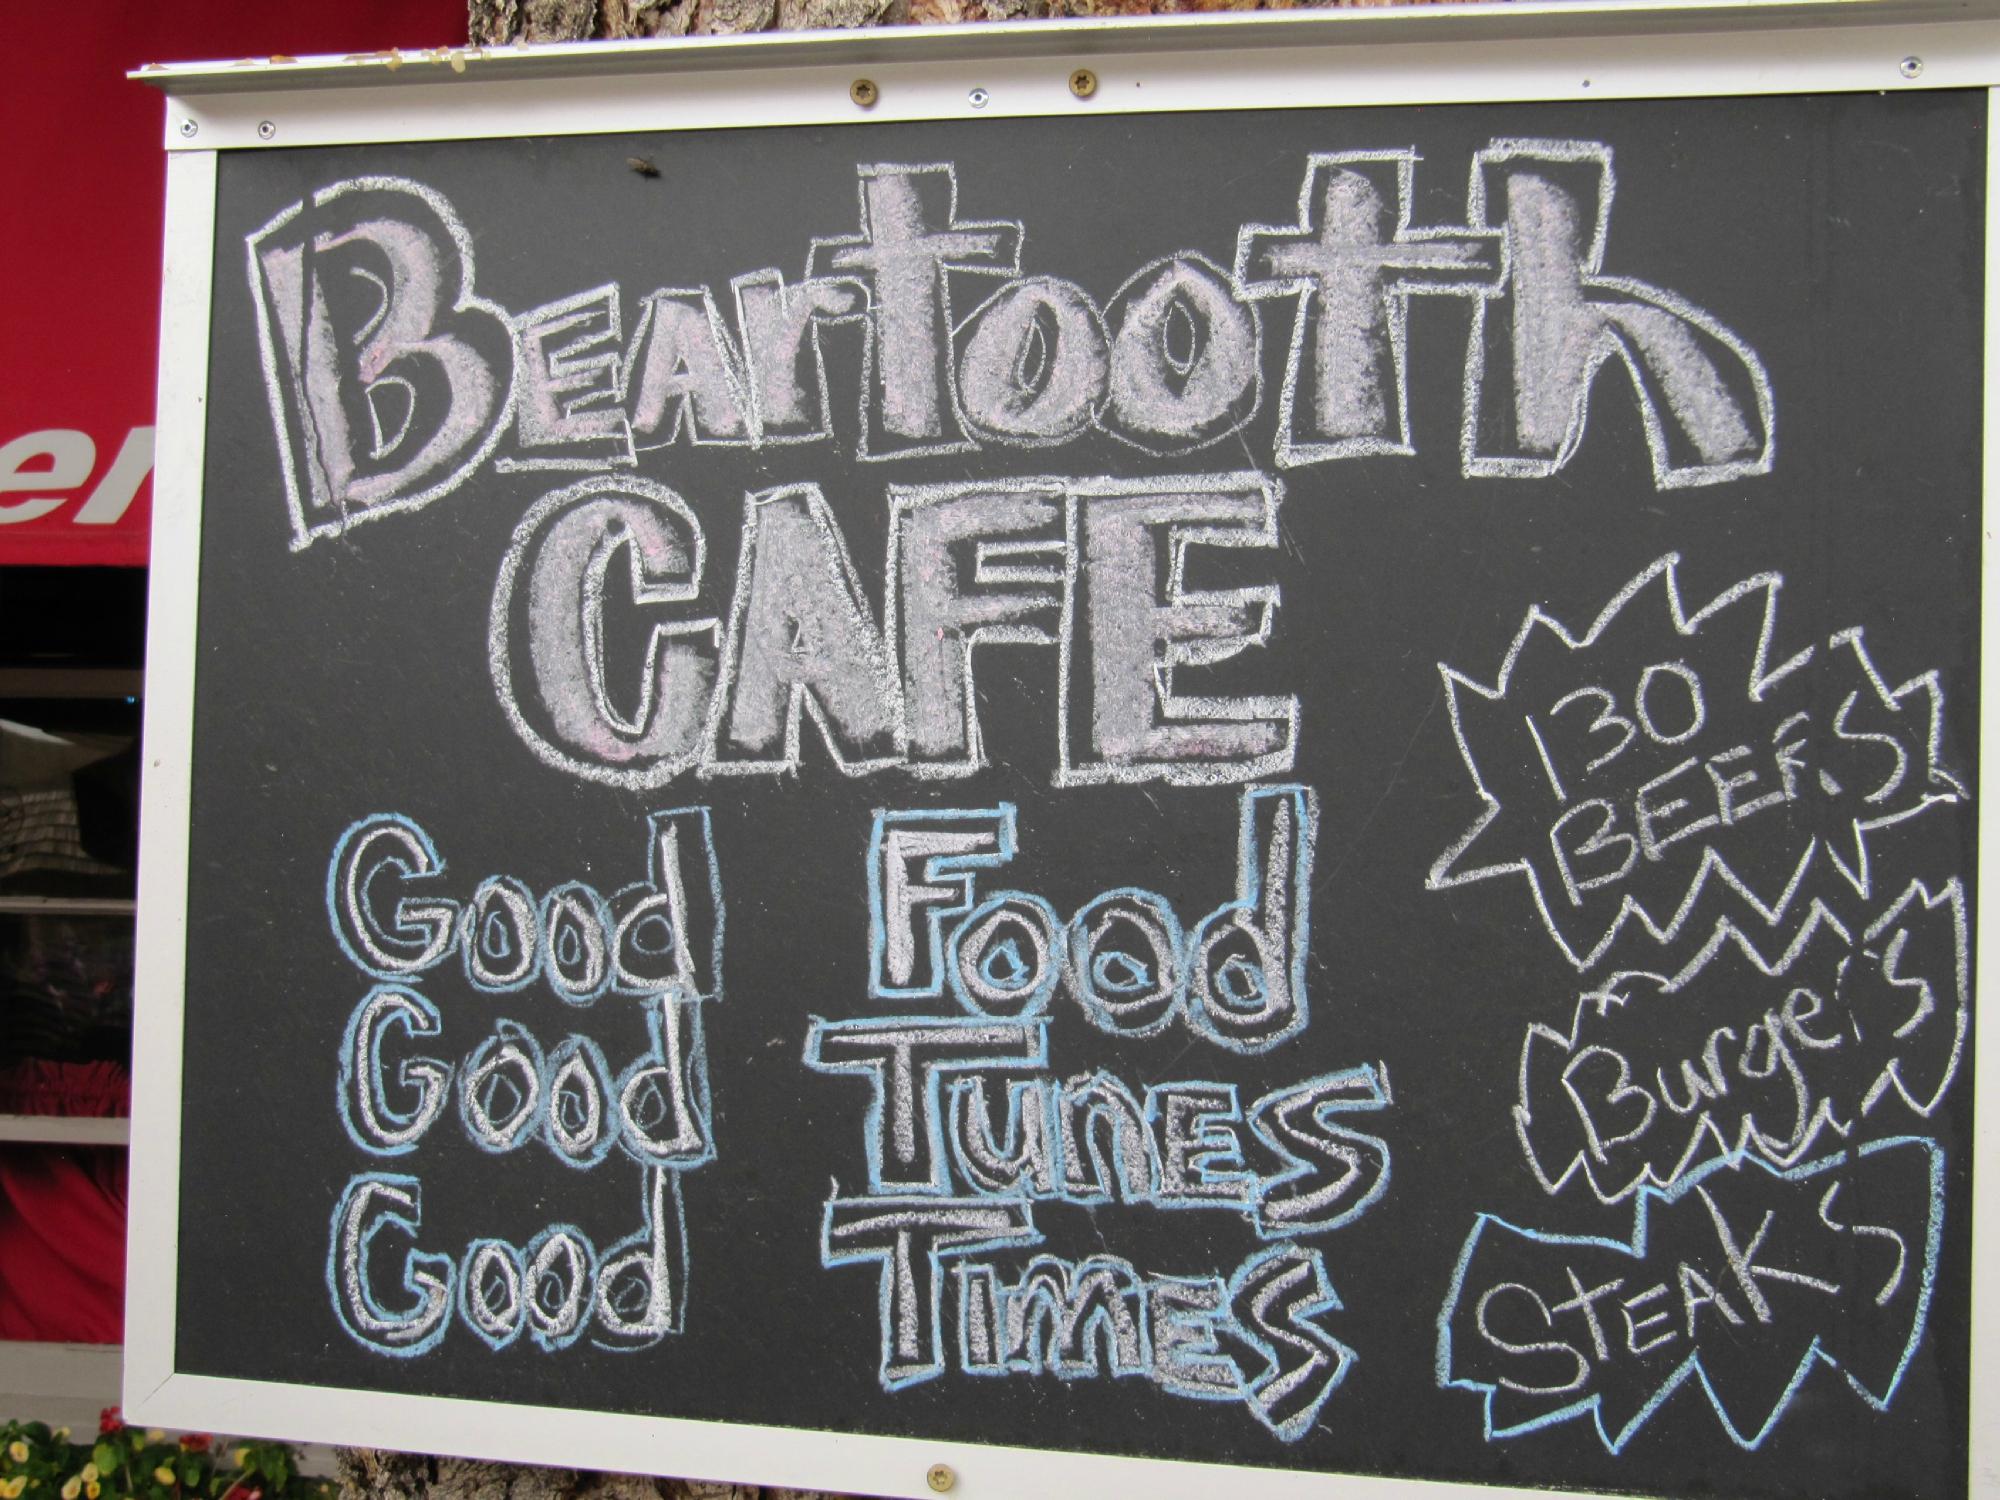 Beartooth
CAFE
Good Food
Good Tunes
Good Times
130
BEERS
Burgers
STEAKS
er